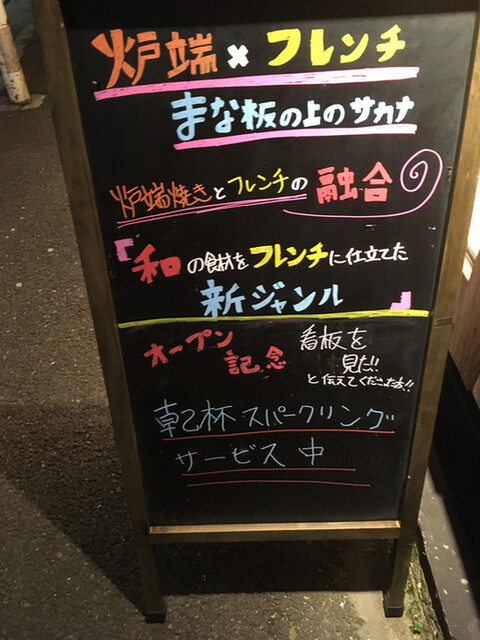 炉端×フレンチ
まな板の上のサカナ
炉端焼きとフレンチの融合
『和の食材をフレンチに仕立てた
新ジャンル』
オープン
記念
看板を
見た!!
と伝えてくださった方!!
乾杯スパークリング
サービス中